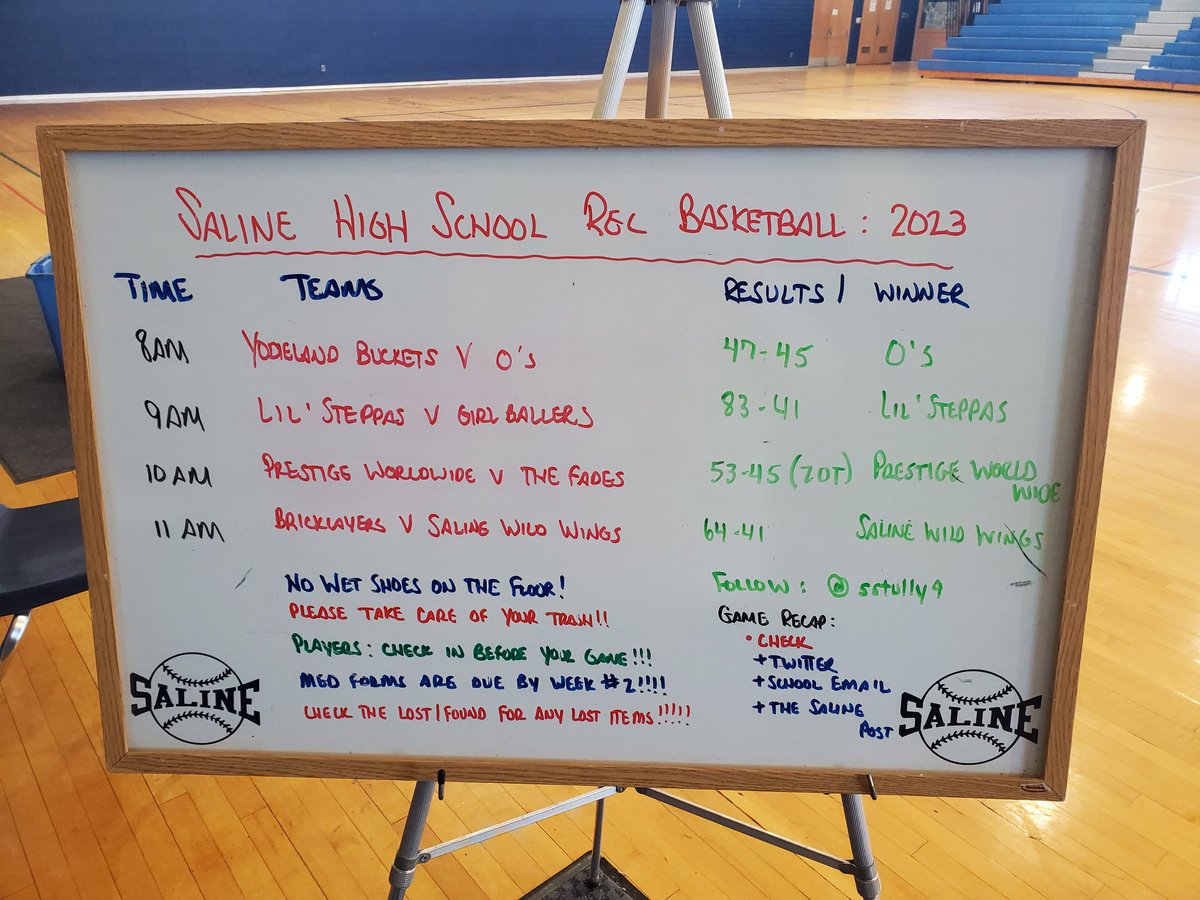 SALINE HIGH SCHOOL REC BASKETBALL: 2023
TIME TEAMS RESULTS / WINNER
8AM YODIELAND BUCKETS V O'S 47-45 O'S
9AM LIL' STEPPAS V GIRL BALLERS 83-41 LIL' STEPPAS
10 AM PRESTIGE WORLDWIDE V THE FADES 53-45 (2OT) PRESTIGE WORLD
WIDE
11 AM BRICKLAYERS V SALINE WILD WINGS 64-41 SALINE WILD WINGS
NO WET SHOES ON THE FLOOR!
PLEASE TAKE CARE OF YOUR TRASH!!
PLAYERS: CHECK IN BEFORE YOUR GAME!!!
MED FORMS ARE DUE BY WEEK #2!!!!
CHECK THE LOST/FOUND FOR ANY LOST ITEMS!!!!!
FOLLOW: @sstully9
GAME RECAP:
• CHECK
+ TWITTER
+ SCHOOL EMAIL
+ THE SALINE
POST
SALINE
SALINE